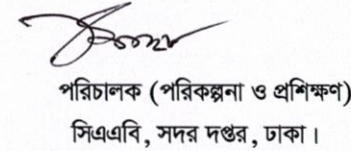 পরিচালক (পরিকল্পনা ও প্রশিক্ষণ)
সিএএবি, সদর দপ্তর, ঢাকা।